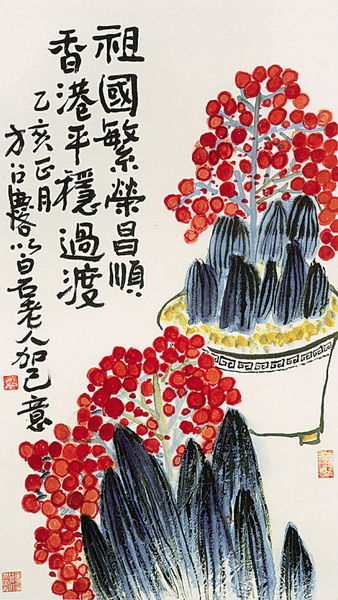 祖國繁榮昌順
香港平穩過渡
乙亥正月
方召麐以白石老人加己意